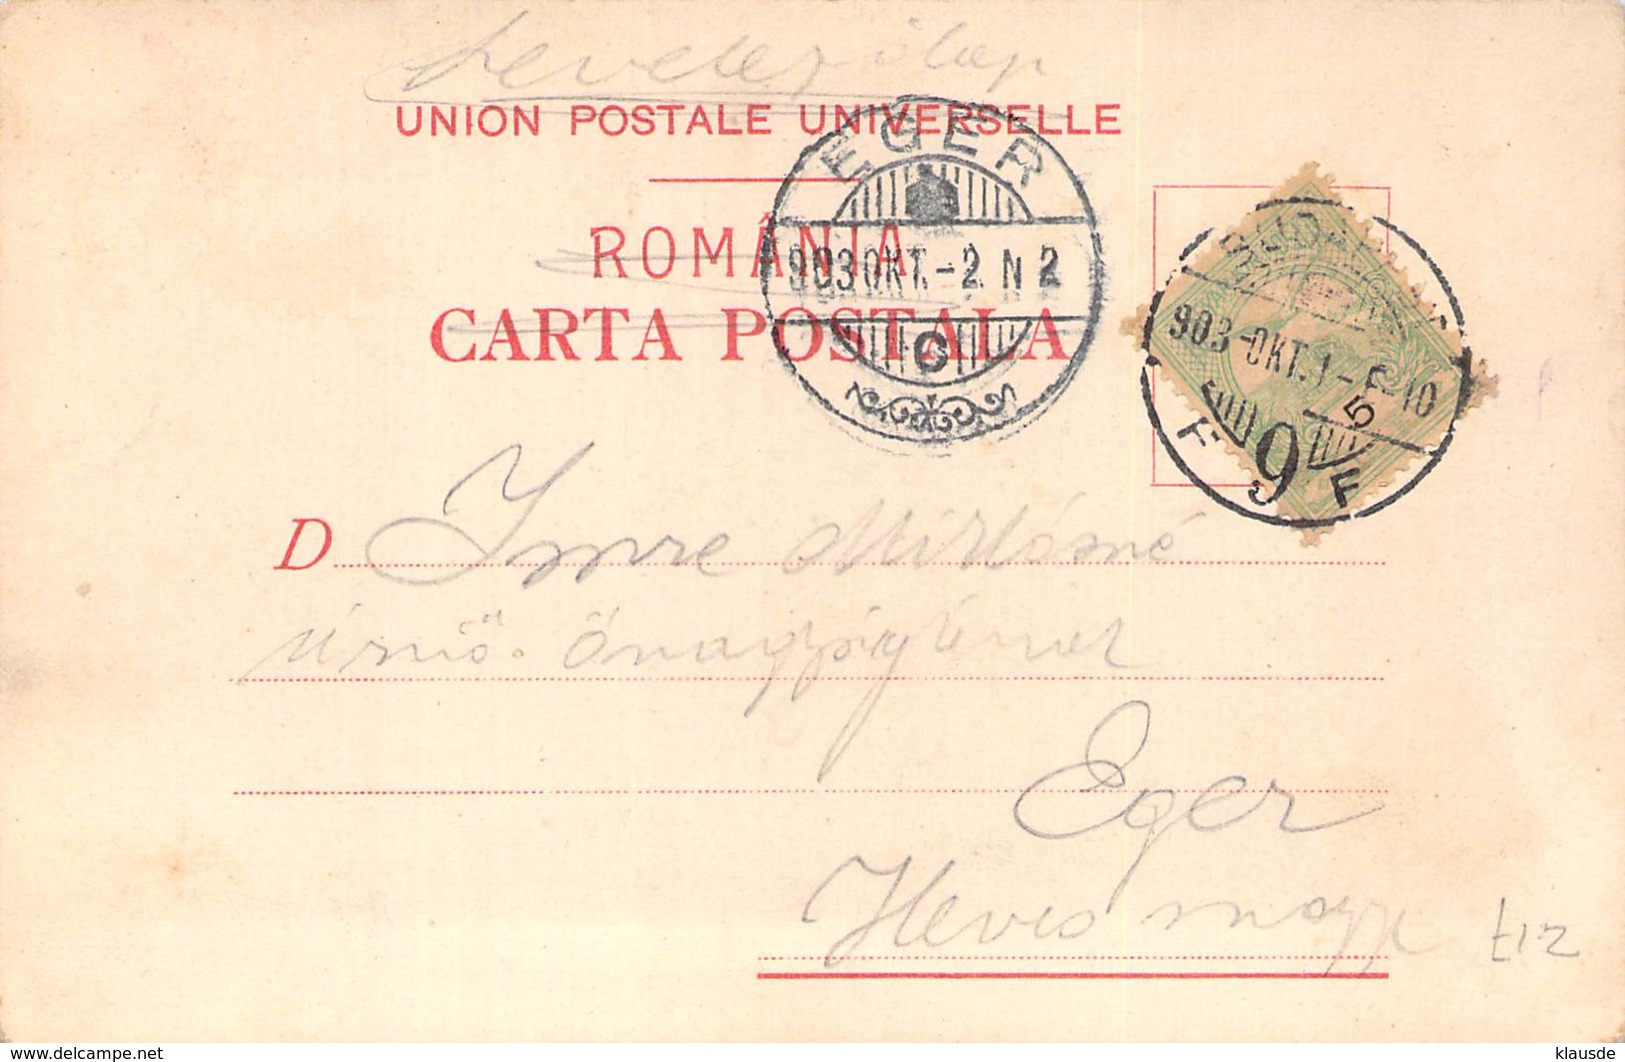 Levelezőlap
UNION POSTALE UNIVERSELLE
ROMÂNIA
CARTA POSTALA
EGER
903 OKT. -2. N 2
C
BUDAPEST
903 -OKT. 1
9
F F
D Imre Miklósné
úrnő. Önagyságának
Eger
Heves megye
klausde www.delcampe.net